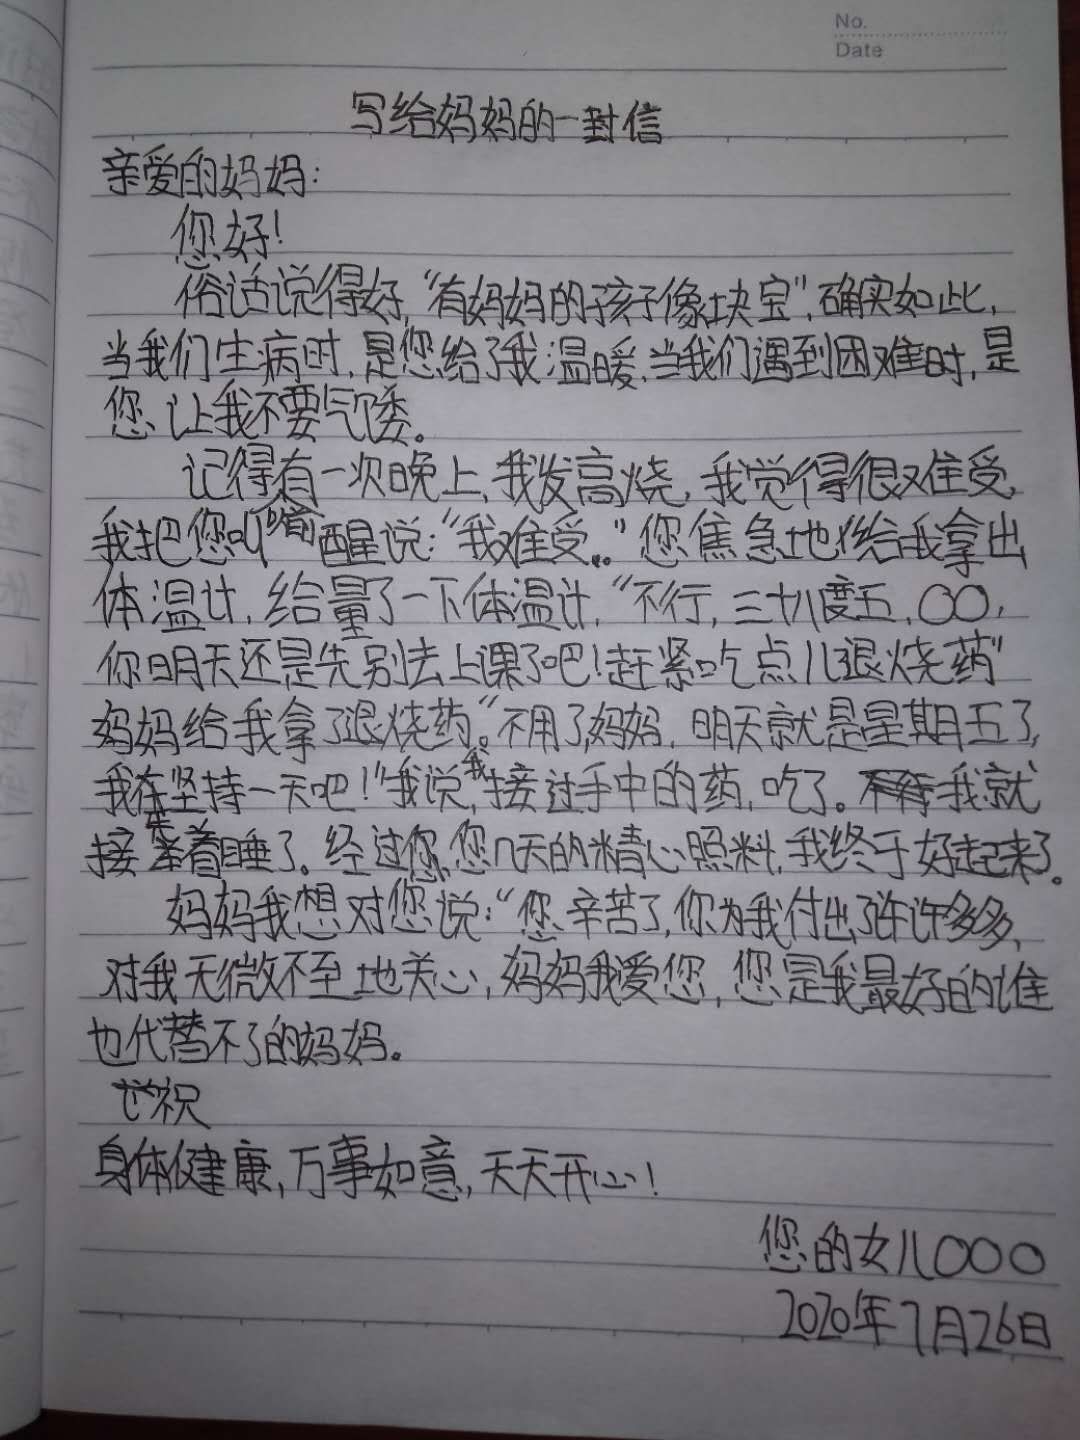 No.
Date
写给妈妈的一封信
亲爱的妈妈:
您好!
俗话说得好,“有妈妈的孩子像块宝”,确实如此,
当我们生病时,是您给了我温暖,当我们遇到困难时,是
您让我不要气馁。
记得有一次晚上,我发高烧,我觉得很难受,
我把您叫醒说:“我难受..”您焦急地给我拿出
体温计,给量了一下体温计,“不行,三十八度五,〇〇,
你明天还是先别去上课了吧!赶紧吃点儿退烧药”
妈妈给我拿了退烧药。“不用了,妈妈,明天就是星期五了,
我在坚持一天吧!”我说,我接过手中的药,吃了。我就
接着睡了。经过您,您几天的精心照料,我终于好起来了。
妈妈我想对您说:“您辛苦了,你为我付出了许许多多,
对我无微不至地关心,妈妈我爱您,您是我最好的谁
也代替不了的妈妈。
祝
身体健康,万事如意,天天开心!
您的女儿〇〇〇
2020年7月26日